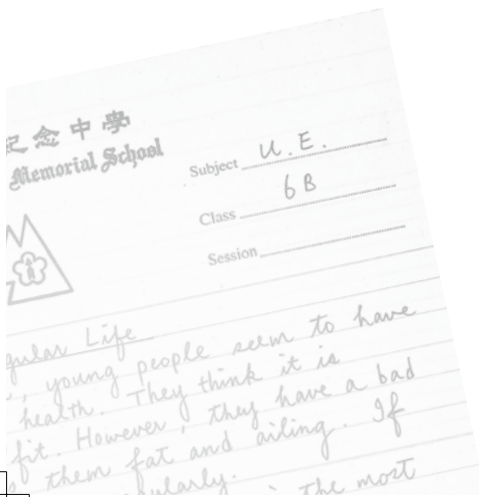 紀念中學
Memorial School
Subject U.E.
Class 6B
Session
gular Life
, young people seem to have
health. They think it is
fit. However, they have a bad
them fat and ailing. If
ularly.
is the most